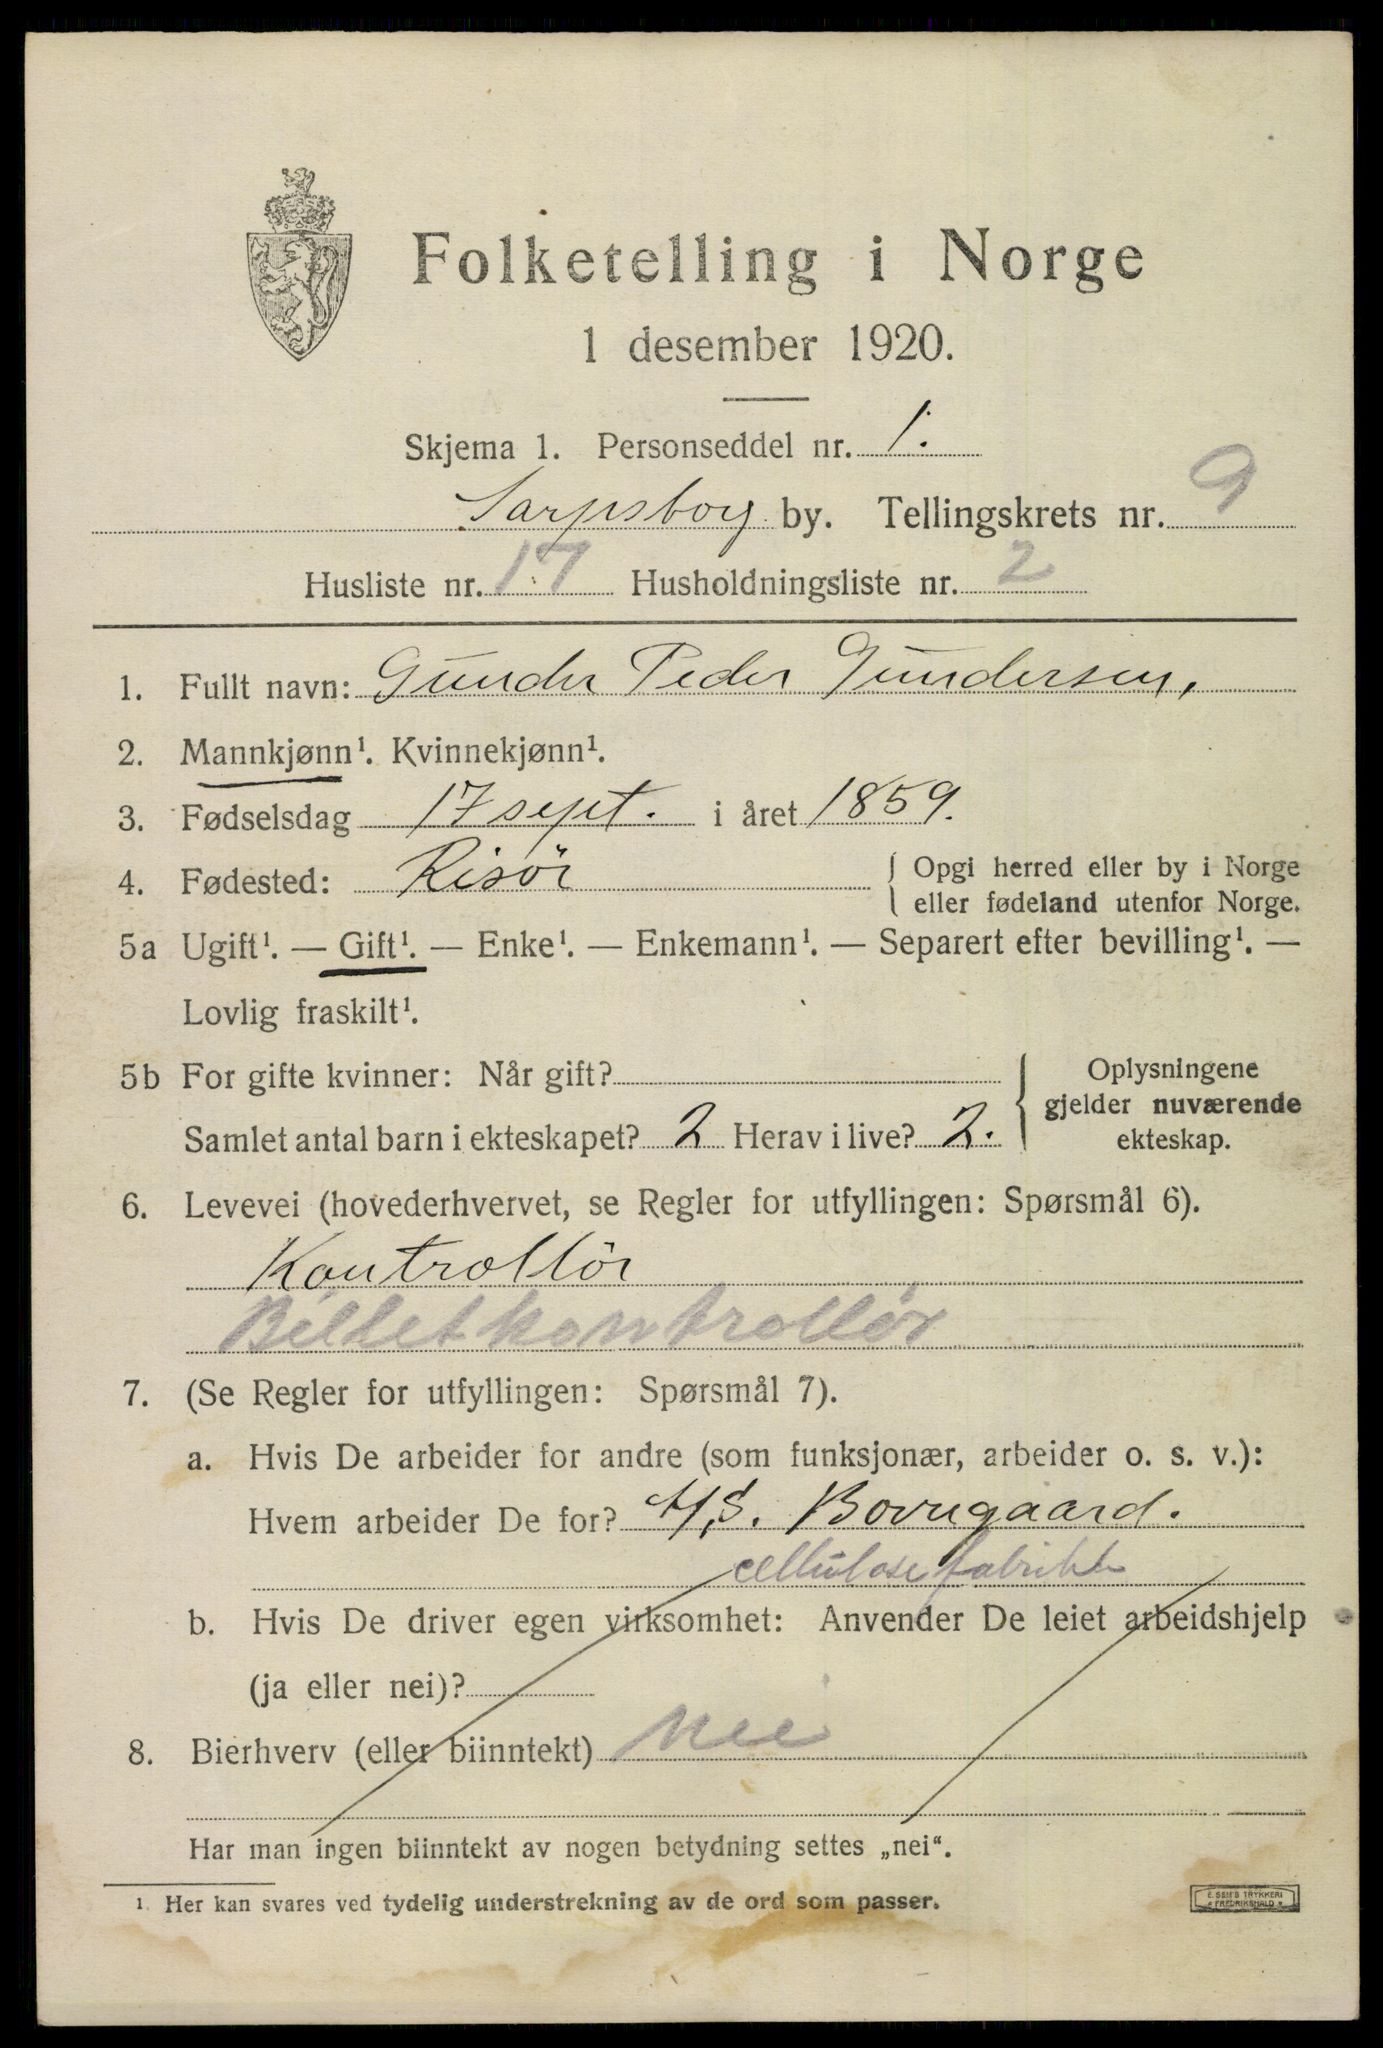 Folketelling i Norge
1 desember 1920.
Skjema 1. Personseddel nr. 1.
Sarpsborg by. Tellingskrets nr. 9
Husliste nr. 17 Husholdningsliste nr. 2
1. Fullt navn: Gunder Peder Gundersen,
2. Mannkjønn¹. Kvinnekjønn¹.
3. Fødselsdag 17 sept. i året 1859.
4. Fødested: Risör { Opgi herred eller by i Norge
eller fødeland utenfor Norge.
5a Ugift¹. — Gift¹. — Enke¹. — Enkemann¹. — Separert efter bevilling¹. —
Lovlig fraskilt¹.
5b For gifte kvinner: Når gift? { Oplysningene
gjelder nuværende
Samlet antal barn i ekteskapet? 2 Herav i live? 2.
ekteskap.
6. Levevei (hovederhvervet, se Regler for utfyllingen: Spørsmål 6).
Kontrollör
Billetkontrollør
7. (Se Regler for utfyllingen: Spørsmål 7).
a. Hvis De arbeider for andre (som funksjonær, arbeider o. s. v.):
Hvem arbeider De for? A/S. Borregaard.
cellulosefabrikk
b. Hvis De driver egen virksomhet: Anvender De leiet arbeidshjelp
(ja eller nei)?
8. Bierhverv (eller biinntekt) nei
Har man ingen biinntekt av nogen betydning settes „nei“.
1. Her kan svares ved tydelig understrekning av de ord som passer.
E. SEM'S TRYKKERI
FREDRIKSHALD